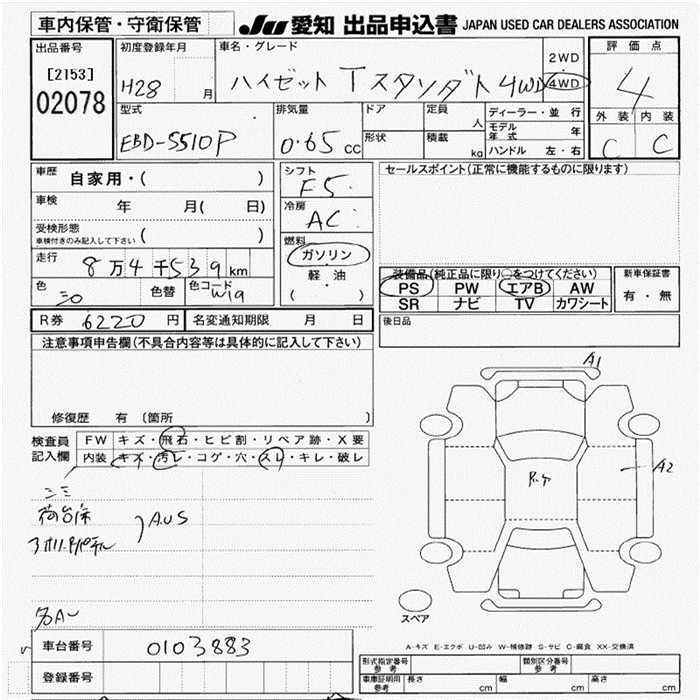 車内保管・守衛保管
JU 愛知 出品申込書 JAPAN USED CAR DEALERS ASSOCIATION
出品番号
[2153]
02078
初度登録年月
H28 月
車名・グレード
ハイゼット Tスタンダート 4WD
2WD
4WD
評価点
4
外装 内装
C C
型式
EBD-S510P
排気量
0.65 cc
ドア
形状
定員 人
積載 kg
ディーラー・並行
モデル年式 年
ハンドル 左・右
車歴 自家用・( )
車検 年 月( 日)
受検形態
車検付きのみ記入して下さい ( )
走行 8万4千539km
色 色替 色コード W19
シフト
F5
冷房
AC
燃料
ガソリン
軽油
( ・ )
セールスポイント(正常に機能するものに限ります)
装備品(純正品に限り○をつけてください)
PS PW エアB AW
SR ナビ TV カワシート
新車保証書
有・無
R券 6220円 名変通知期限 月 日
後日品
注意事項申告欄(不具合内容等は具体的に記入して下さい)
修復歴 有 (箇所 )
検査員記入欄
FW キズ・飛石・ヒビ割・リペア跡・X要
内装 キズ・汚レ・コゲ・穴・スレ・キレ・破レ
荷台床
AUS
A1
A2
スペア
A-キズ E-エクボ U-凹み W-補修跡 S-サビ C-腐食 XX-交換済
車台番号 0103883
登録番号
形式指定番号 参考
類別区分番号 参考
車庫証明用 参考 長さ cm 幅 cm 高さ cm